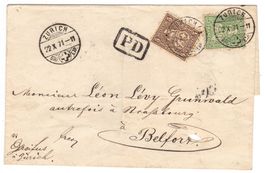 ZÜRICH
22 X 71-11
PD
ZÜRICH
22 X 71-11
Monsieur Léon Lévy Grunwald
autrefois à Strasbourg
à Belfort
à Zürich